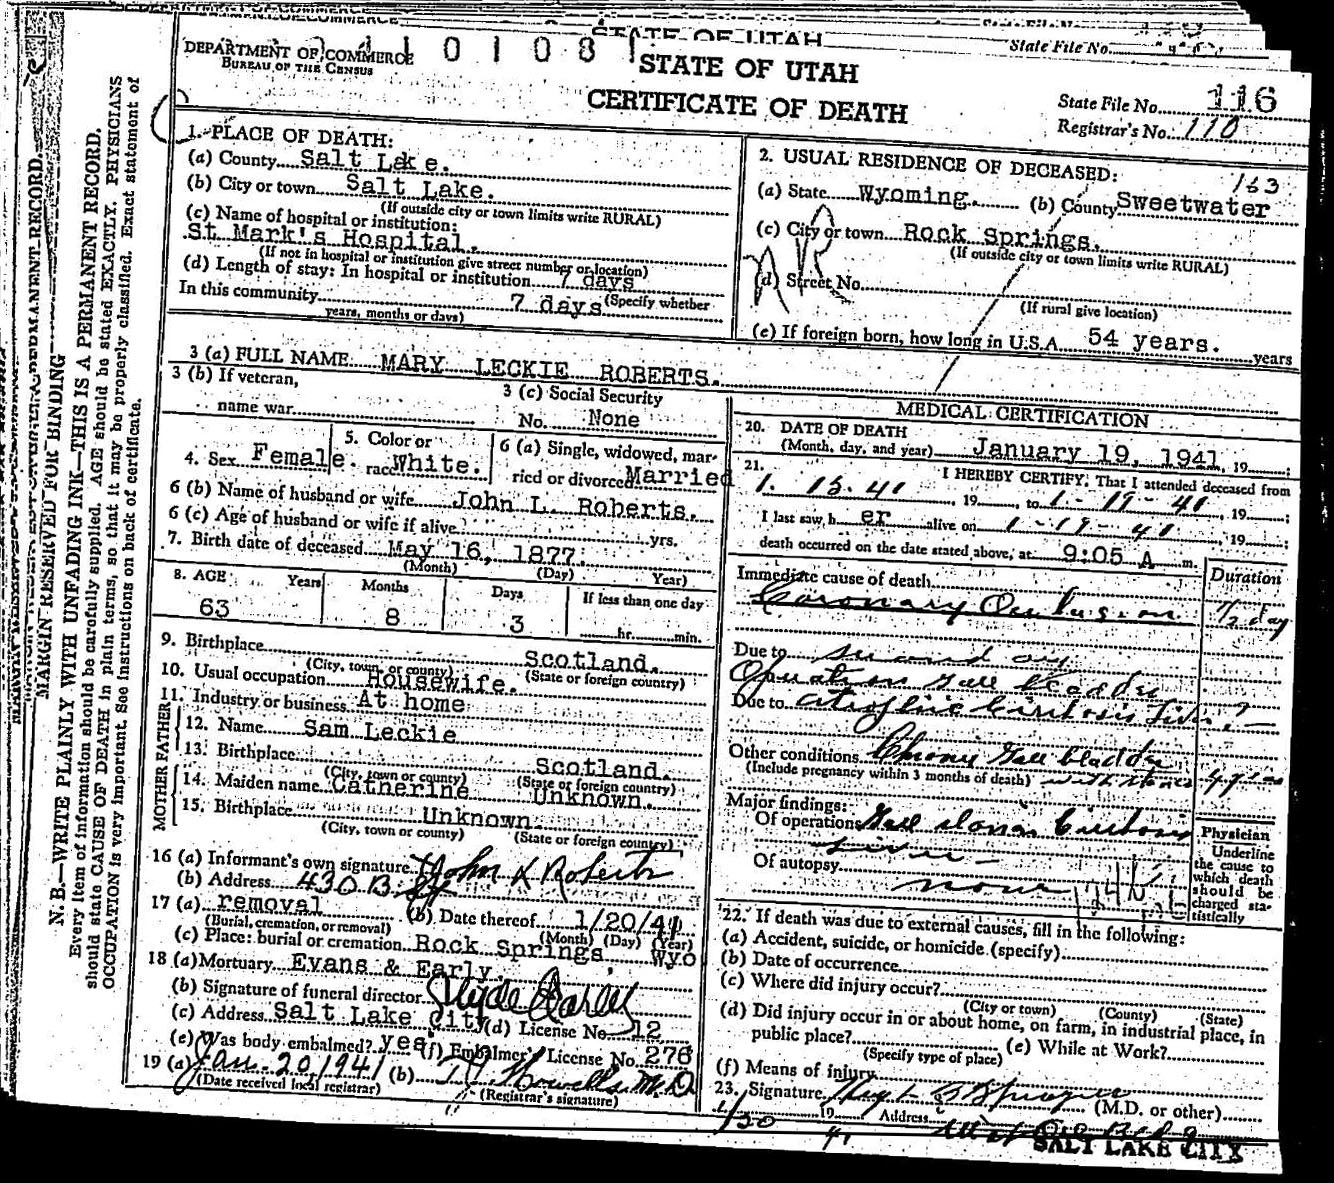 STATE OF UTAH
State File No.
DEPARTMENT OF COMMERCE
BUREAU OF THE CENSUS
1 0 1 0 8 1
STATE OF UTAH
CERTIFICATE OF DEATH
State File No. 116
Registrar's No. 110
MARGIN RESERVED FOR BINDING
N. B.—WRITE PLAINLY WITH UNFADING INK—THIS IS A PERMANENT RECORD.
Every item of information should be carefully supplied. AGE should be stated EXACTLY. PHYSICIANS
should state CAUSE OF DEATH in plain terms, so that it may be properly classified. Exact statement of
OCCUPATION is very important. See instructions on back of certificate.
1. PLACE OF DEATH:
(a) County Salt Lake.
(b) City or town Salt Lake.
(If outside city or town limits write RURAL)
(c) Name of hospital or institution:
St Mark's Hospital.
(If not in hospital or institution give street number or location)
(d) Length of stay: In hospital or institution 7 days
In this community 7 days (Specify whether
years, months or days)
2. USUAL RESIDENCE OF DECEASED:
163
(a) State Wyoming. (b) County Sweetwater
(c) City or town Rock Springs.
(If outside city or town limits write RURAL)
NR
(d) Street No.
(If rural give location)
(e) If foreign born, how long in U.S.A. 54 years. years
3 (a) FULL NAME MARY LECKIE ROBERTS.
3 (b) If veteran,
name war
3 (c) Social Security
No. None
4. Sex Female.
5. Color or
race White.
6 (a) Single, widowed, mar-
ried or divorced Married
6 (b) Name of husband or wife John L. Roberts.
6 (c) Age of husband or wife if alive yrs.
7. Birth date of deceased May 16, 1877.
(Month) (Day) Year)
8. AGE Years Months Days If less than one day
63 8 3 hr. min.
9. Birthplace Scotland.
(City, town, or county) (State or foreign country)
10. Usual occupation Housewife.
11. Industry or business At home
FATHER
12. Name Sam Leckie
13. Birthplace Scotland.
(City, town or county) (State or foreign country)
MOTHER
14. Maiden name Catherine Unknown.
15. Birthplace Unknown
(City, town or county) (State or foreign country)
16 (a) Informant's own signature John L Roberts
(b) Address 430 B. St
17 (a) removal (b) Date thereof 1/20/41
(Burial, cremation, or removal) (Month) (Day) (Year)
(c) Place: burial or cremation Rock Springs, Wyo
18 (a) Mortuary Evans & Early.
(b) Signature of funeral director Clyde Early
(c) Address Salt Lake City (d) License No. 12
(e) Was body embalmed? yes (f) Embalmer's License No. 276
19 (a) Jan. 20, 1941 (b) Howells M.D
(Date received local registrar) (Registrar's signature)
MEDICAL CERTIFICATION
20. DATE OF DEATH
(Month, day, and year) January 19, 1941, 19 ;
21. I HEREBY CERTIFY, That I attended deceased from
1. 13. 41, 19 , to 1-19-41, 19 ;
I last saw h er alive on 1-19-41, 19 ;
death occurred on the date stated above, at 9:05 A m.
Duration
Immediate cause of death
Coronary Occlusion 1/2 day
Due to
Operation Gall bladder
Due to atrophic Cirrhosis Liver ? —
Other conditions Chronic Gall bladder
(Include pregnancy within 3 months of death) with stones
Major findings:
Of operation Gall stones Cirrhosis
Liver —
Of autopsy none
Physician
Underline
the cause to
which death
should be
charged sta-
tistically
22. If death was due to external causes, fill in the following:
(a) Accident, suicide, or homicide (specify)
(b) Date of occurrence
(c) Where did injury occur?
(City or town) (County) (State)
(d) Did injury occur in or about home, on farm, in industrial place, in
public place? (e) While at Work?
(Specify type of place)
(f) Means of injury
23. Signature (M.D. or other)
1/20 19 41 Address
SALT LAKE CITY